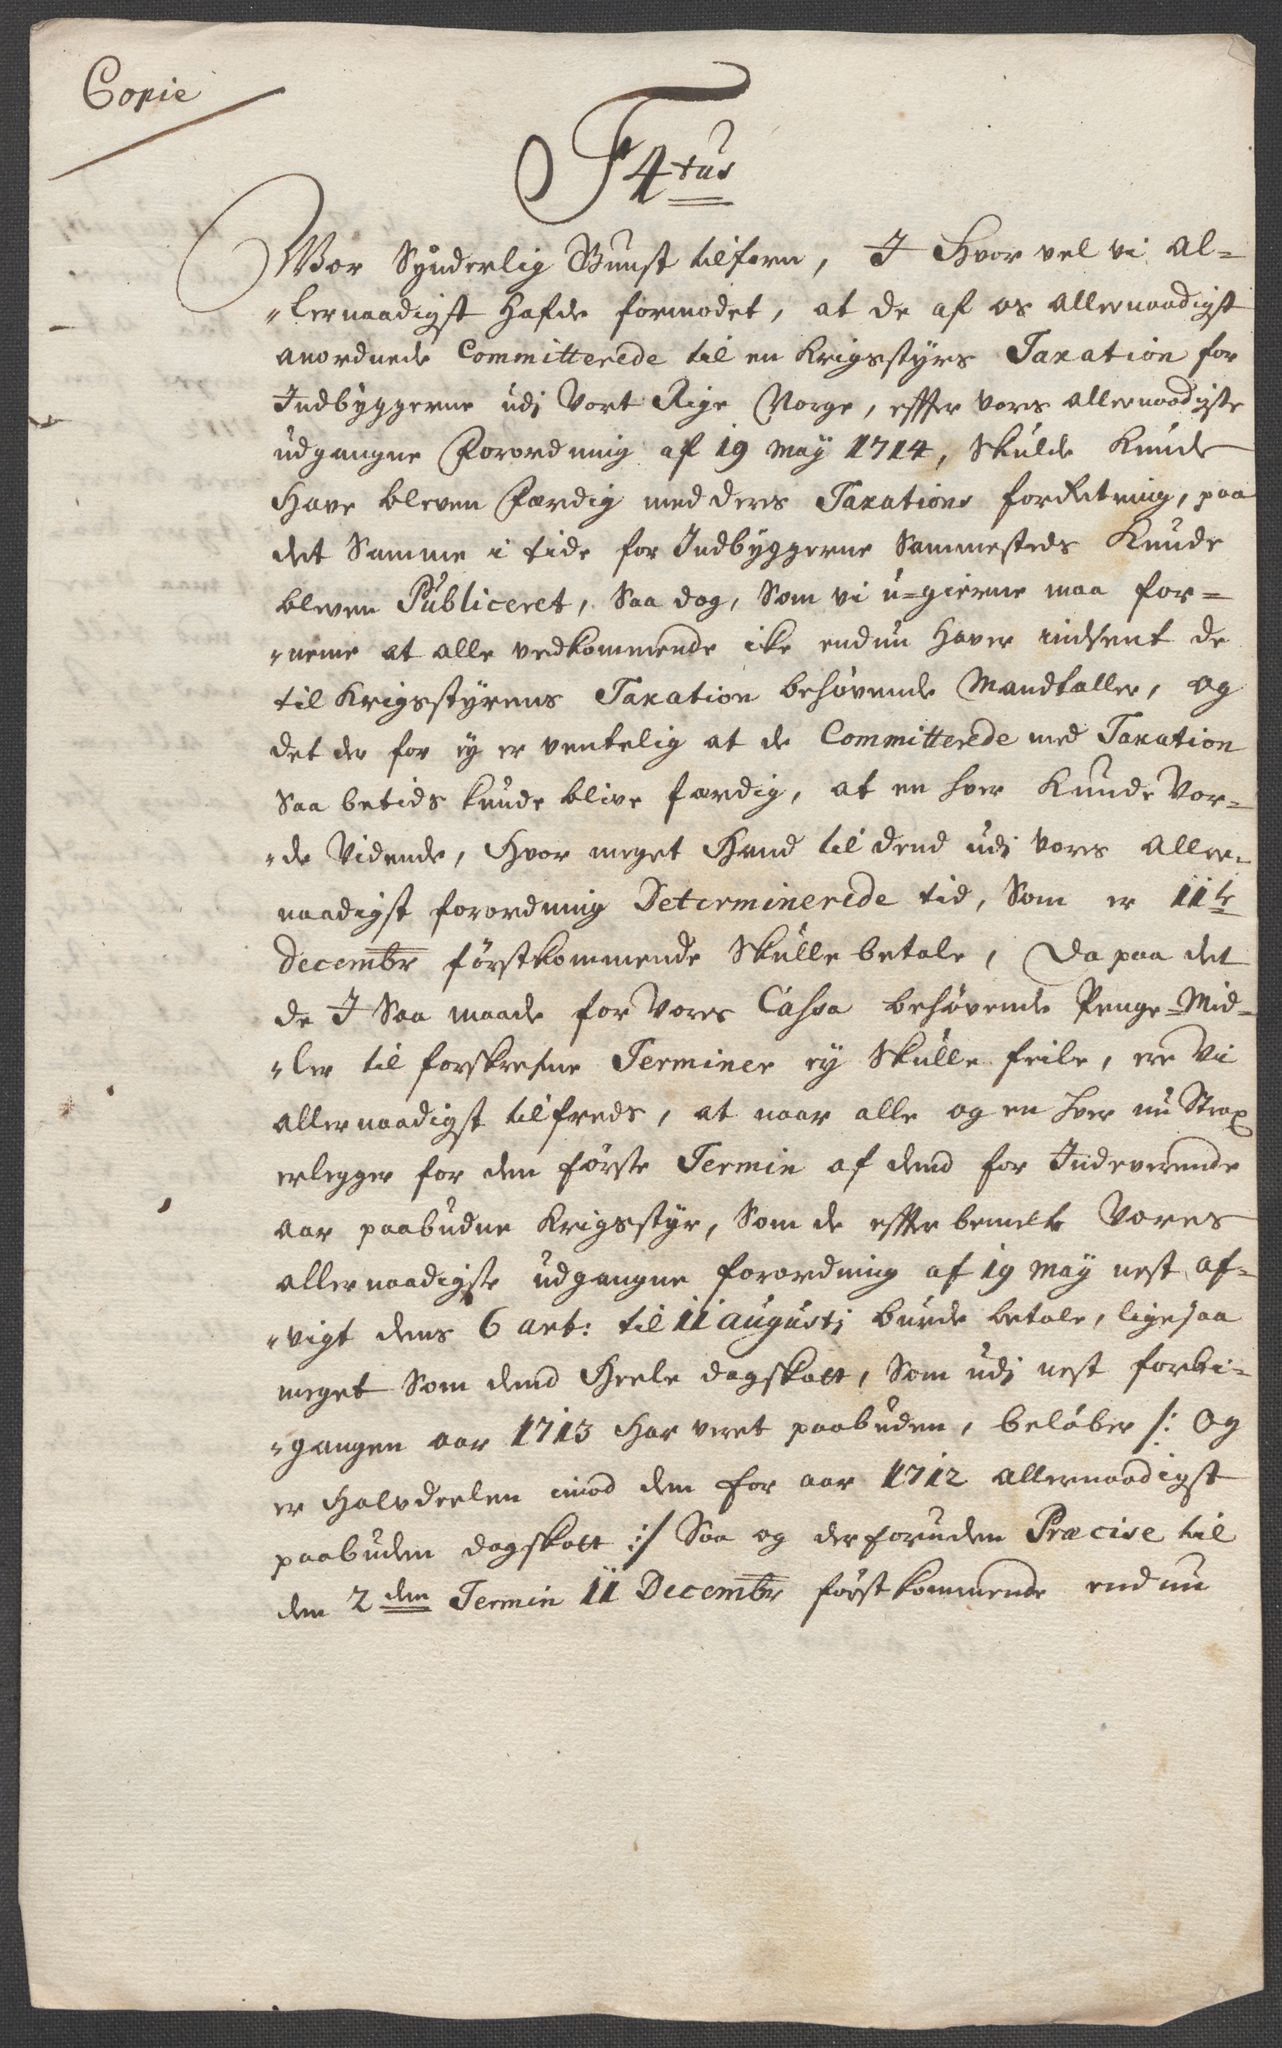 Copie
F 4tus
Vor Synderlig Gunst tilforn, I Hvor vel vi al-
"lernaadigst Hafde formodet, at de af os allernaadigst
anordnede Committerede til en Krigsstyrs Taxation for
Indbyggerne udj Vort Rige Norge, effter Vores allernaadigste
udgangne Forordning af 19 May 1714, Skulde Kunde
Have bleven Færdig med deres Taxations forretning, paa
det Samme i tide for Indbyggerne Sammesteds Kunde
bleven Publiceret, Saa dog, Som vi u-gierne maa for-
"neme at alle vedkommende icke endnu Haver indsent de
til Krigsstyrens Taxation behøvende Mandtaller, og
det der for ej er ventelig at de Committerede med Taxation
Saa betids kunde blive færdig, at en hver Kunde Vor-
"de Vidende, Hvor meget Hand til dend udj Vores Aller-
naadigst forordning Determinerede tid, Som er 11te
Decembr førstkommende Skulle betale, Da paa det
de I Saa maade for Vores Cassa behøvende Penge-Mid-
"ler til forskrefne Terminer ej Skulle feile, ere Vi
allernaadigst tilfreds, at naar alle og en hver nu Strax
erlegger for den første Termin af dend for Indeværende
aar paabudne Krigsstyr, Som de effter bemelte Vores
allernaadigste udgangne forordning af 19 May nest af-
"vigt dens 6 art: til 11 augustj burde betale, ligesaa
meget Som dend Heele dagskatt, Som udj nest forbi-
"gangen aar 1713 Har veret paabuden, beløber /: Og
er Halvdeelen imod den for aar 1712 allernaadigst
paabuden dagskatt :/ Saa og derforuden Præcise til
den 2den Termin 11 Decembr førstkommende endnu